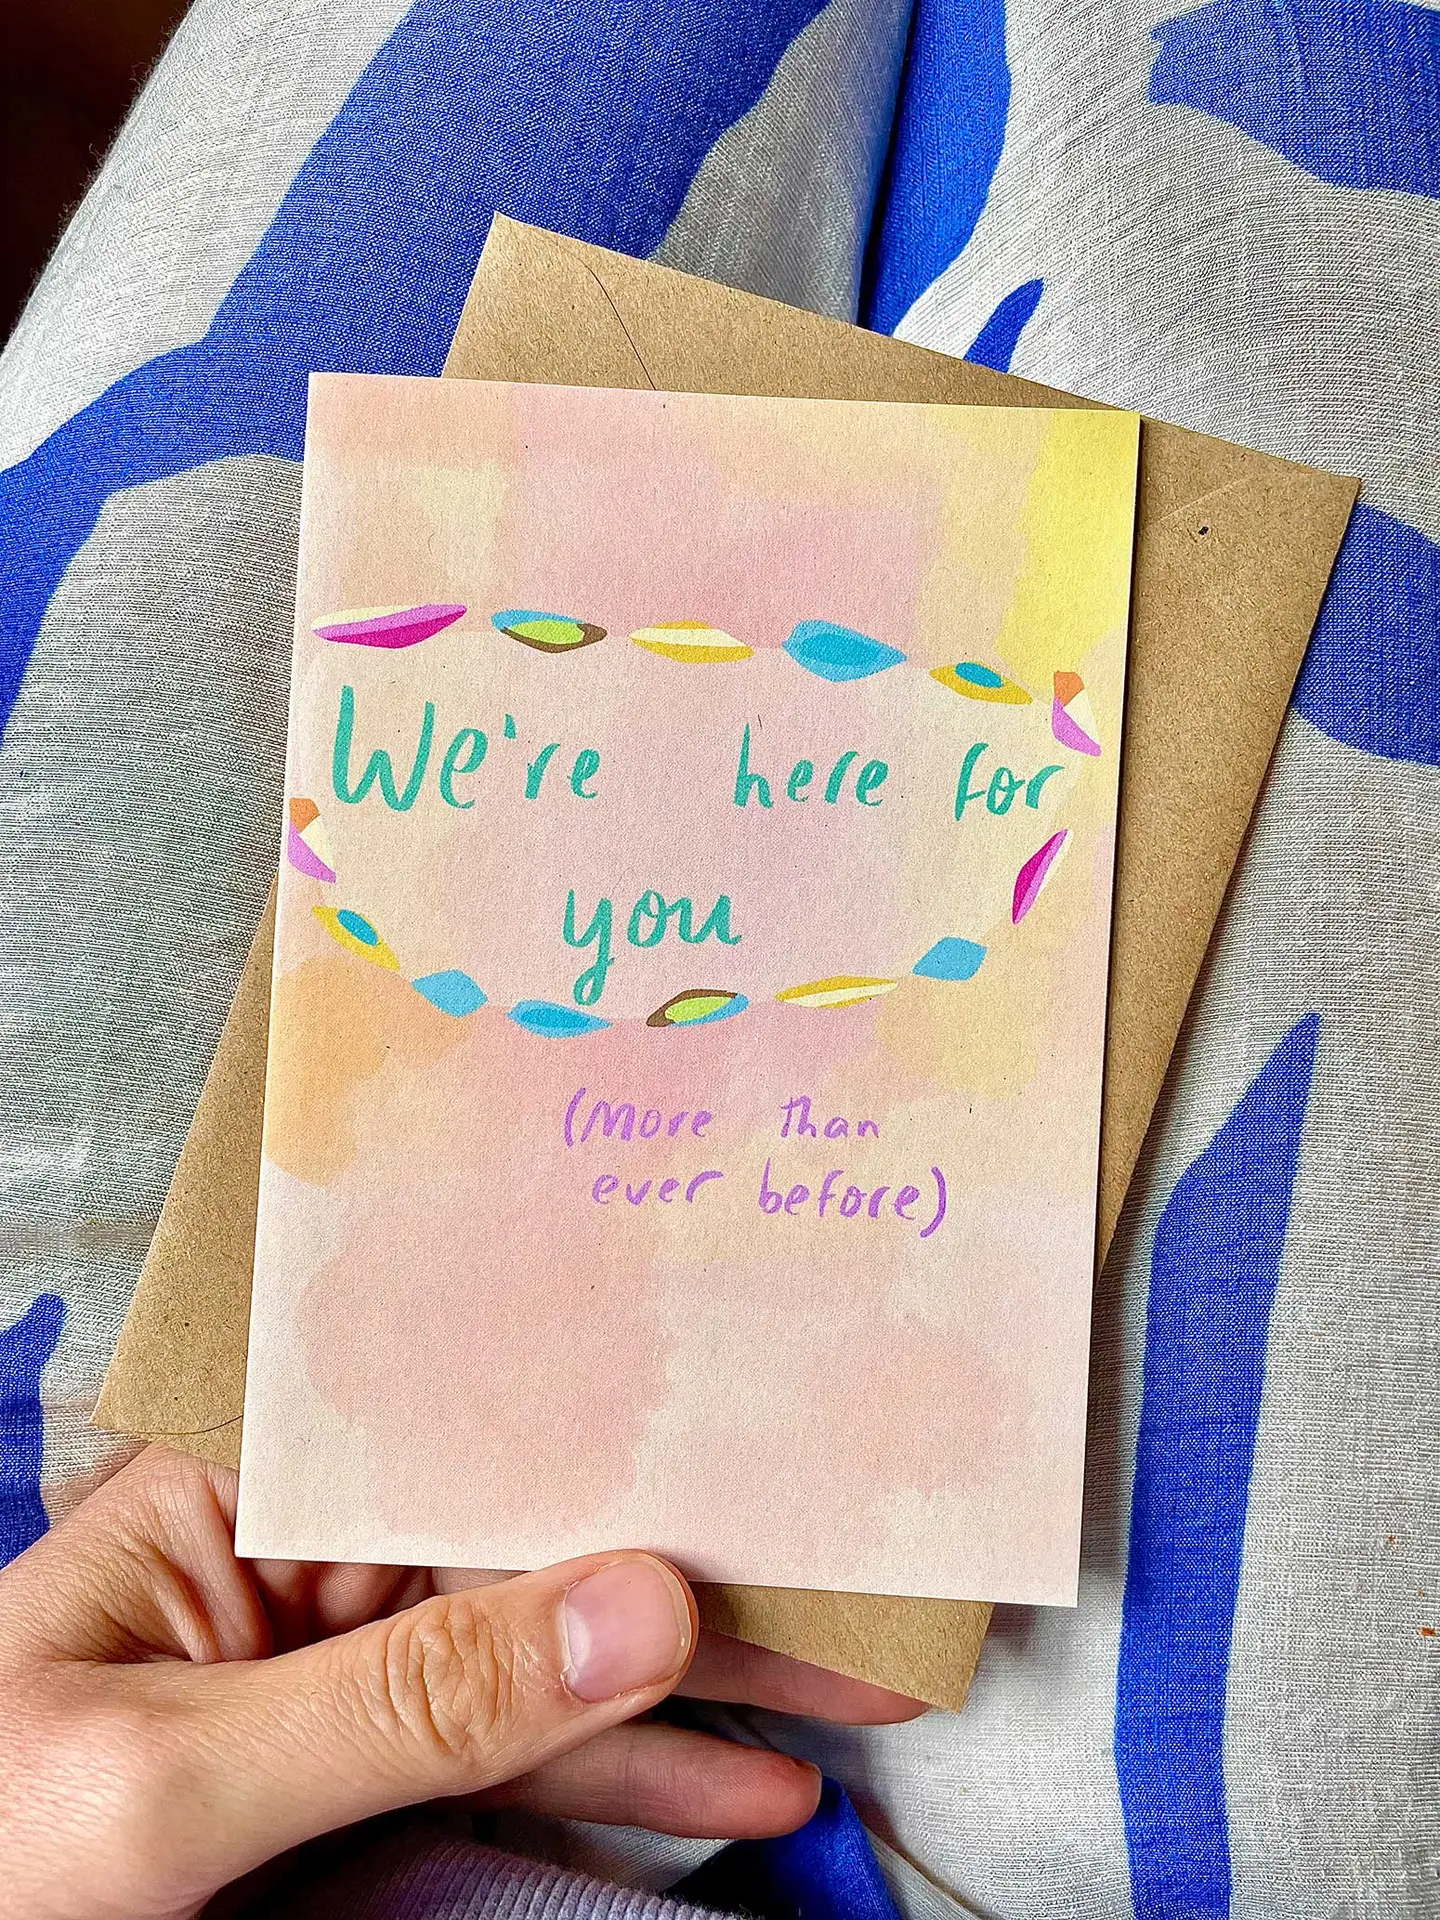 We're here for
you
(More than
ever before)